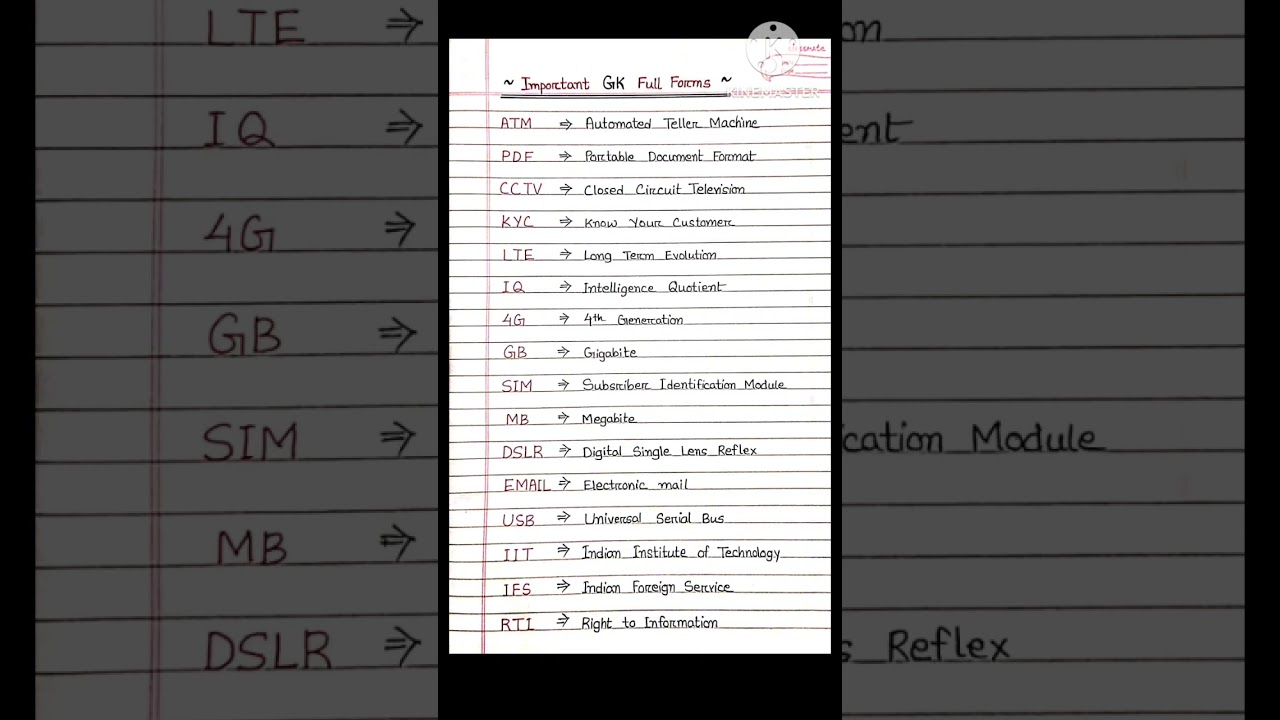 ~ Important GK Full Forms ~
KINEMASTER
ATM ⇒ Automated Teller Machine
PDF ⇒ Portable Document Format
CCTV ⇒ Closed Circuit Television
KYC ⇒ Know Your Customer
LTE ⇒ Long Term Evolution
IQ ⇒ Intelligence Quotient
4G ⇒ 4th Generation
GB ⇒ Gigabite
SIM ⇒ Subsriber Identification Module
MB ⇒ Megabite
DSLR ⇒ Digital Single Lens Reflex
EMAIL ⇒ Electronic mail
USB ⇒ Universal Serial Bus
IIT ⇒ Indian Institute of Technology
IFS ⇒ Indian Foreign Service
RTI ⇒ Right to Information
LTE ⇒
IQ ⇒
4G ⇒
GB ⇒
SIM ⇒
MB ⇒
DSLR ⇒
Module
Reflex